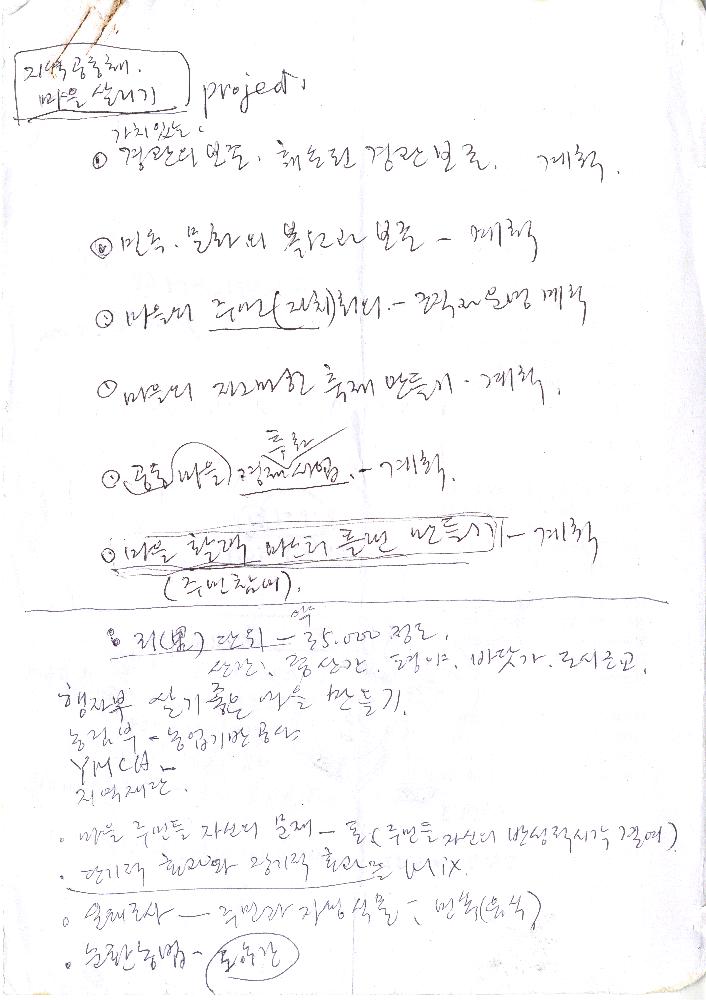 지역공동체.
마을 살리기 project.
가치있는.
경관의 보존. 훼손된 경관 보존. 계획.
민속. 문화의 복원과 보존 - 계획
마을의 주민(자치)회의 - 조직과 운영 계획
마을의 자그마한 축제 만들기 - 계획.
특화
공동 마을 경제사업. - 계획.
마을 활력 마스터 플랜 만들기 - 계획
(주민참여).
약
리(里) 단위 - 35.000 정도.
산간, 중산간. 평야. 바닷가. 도시근교.
행자부 살기좋은 마을 만들기.
농림부 - 농업기반공사
YMCA -
지역재단.
. 마을 주민들 자신의 문제 - 돈 (주민들 자신의 반성적시각 결여)
. 단기적 효과와 장기적 효과를 Mix.
실태조사 - 주민과 자생식물 -, 민속
. 순환농법 -